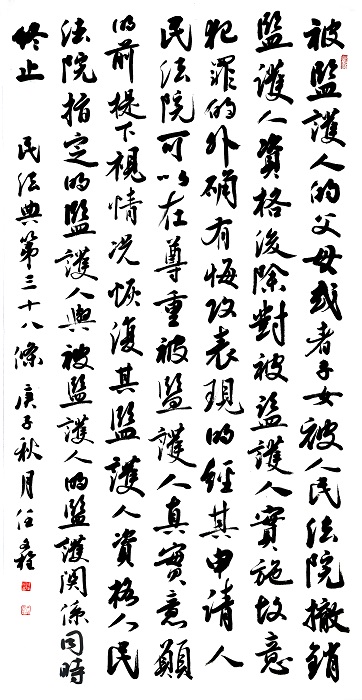 被監護人的父母或者子女被人民法院撤銷
監護人資格後除對被監護人實施故意
犯罪的外確有悔改表現的經其申請人
民法院可以在尊重被監護人真實意願
的前提下視情况恢復其監護人資格人民
法院指定的監護人與被監護人的監護関係同時
終止 民法典第三十八條 庚子秋月任